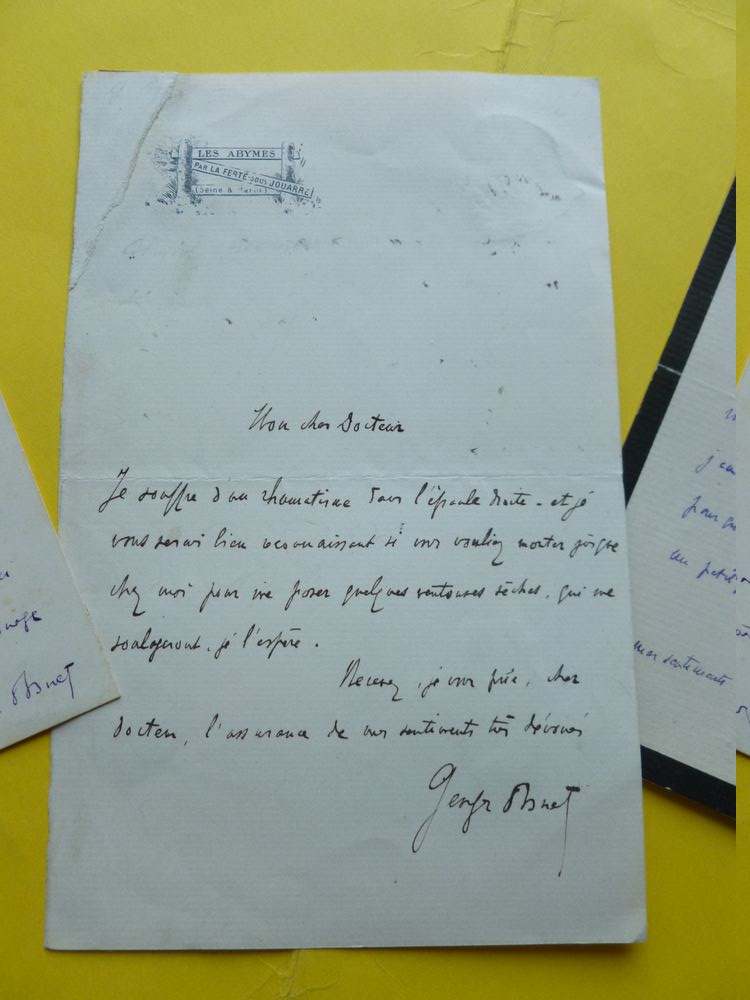 LES ABYMES
PAR LA FERTÉ-SOUS-JOUARRE
(Seine & Marne)
Mon cher Docteur
Je souffre d'un rhumatisme dans l'épaule droite - et je
vous serai bien reconnaissant si vous vouliez monter jusque
chez moi pour me poser quelques ventouses sèches, qui me
soulageront, je l'espère.
Recevez, je vous prie, cher
Docteur, l'assurance de mes sentiments très dévoués
Georges Ohnet
Ohnet
mes sentiments